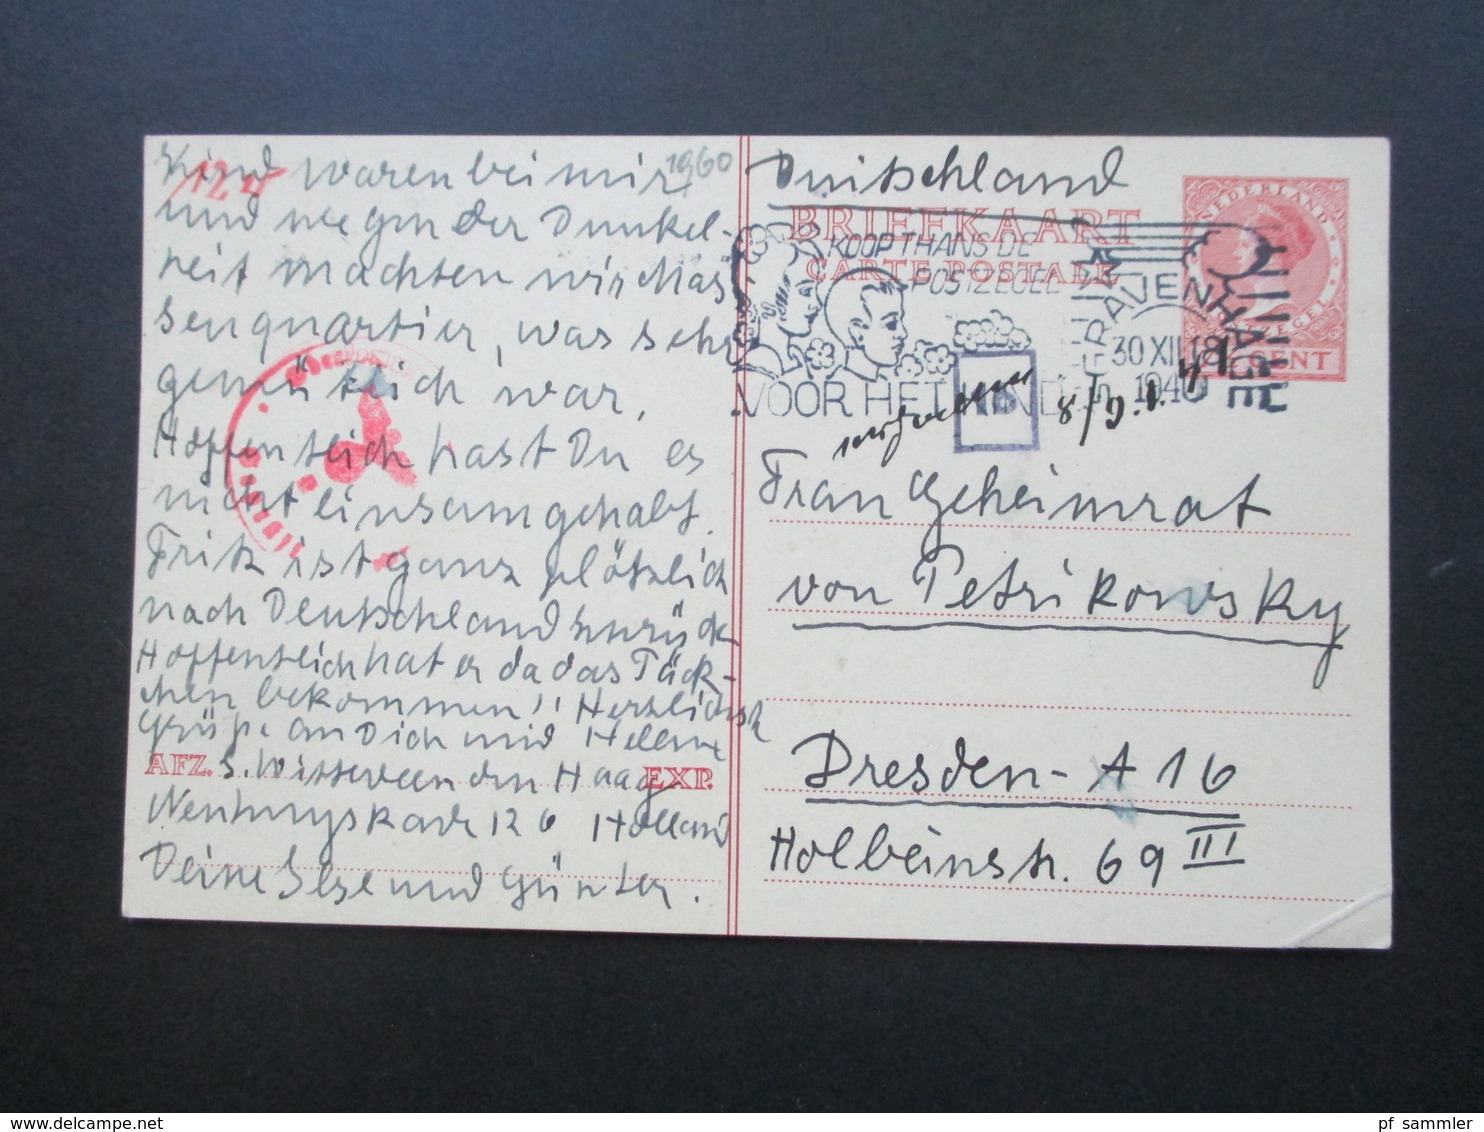 Kind waren bei mir
und wegen der Dunkel-
heit machten wir Mas
senquartier, was sehr
gemütlich war.
Hoffentlich hast Du es
nicht einsam gehabt.
Fritz ist ganz plötzlich
nach Deutschland zurück
Hoffentlich hat er da das Päck-
chen bekommen!! Herzlichste
Grüße an Dich und Hellene
AFZ. S. Witteveen den Haag EXP.
126 Holland
Deine Ilse und Günter.
1960
Deutschland
BRIEFKAART
CARTE POSTALE
NEDERLAND
POSTZEGEL
CENT
KOOP THANS DE
POSTZEGEL
VOOR HET KIND
'S GRAVENHAGE
30 XII 18
1940
8/9.1.41
Frau Geheimrat
von Petrikowsky
Dresden-A 16
Holbeinstr. 69 III
pf_sammler